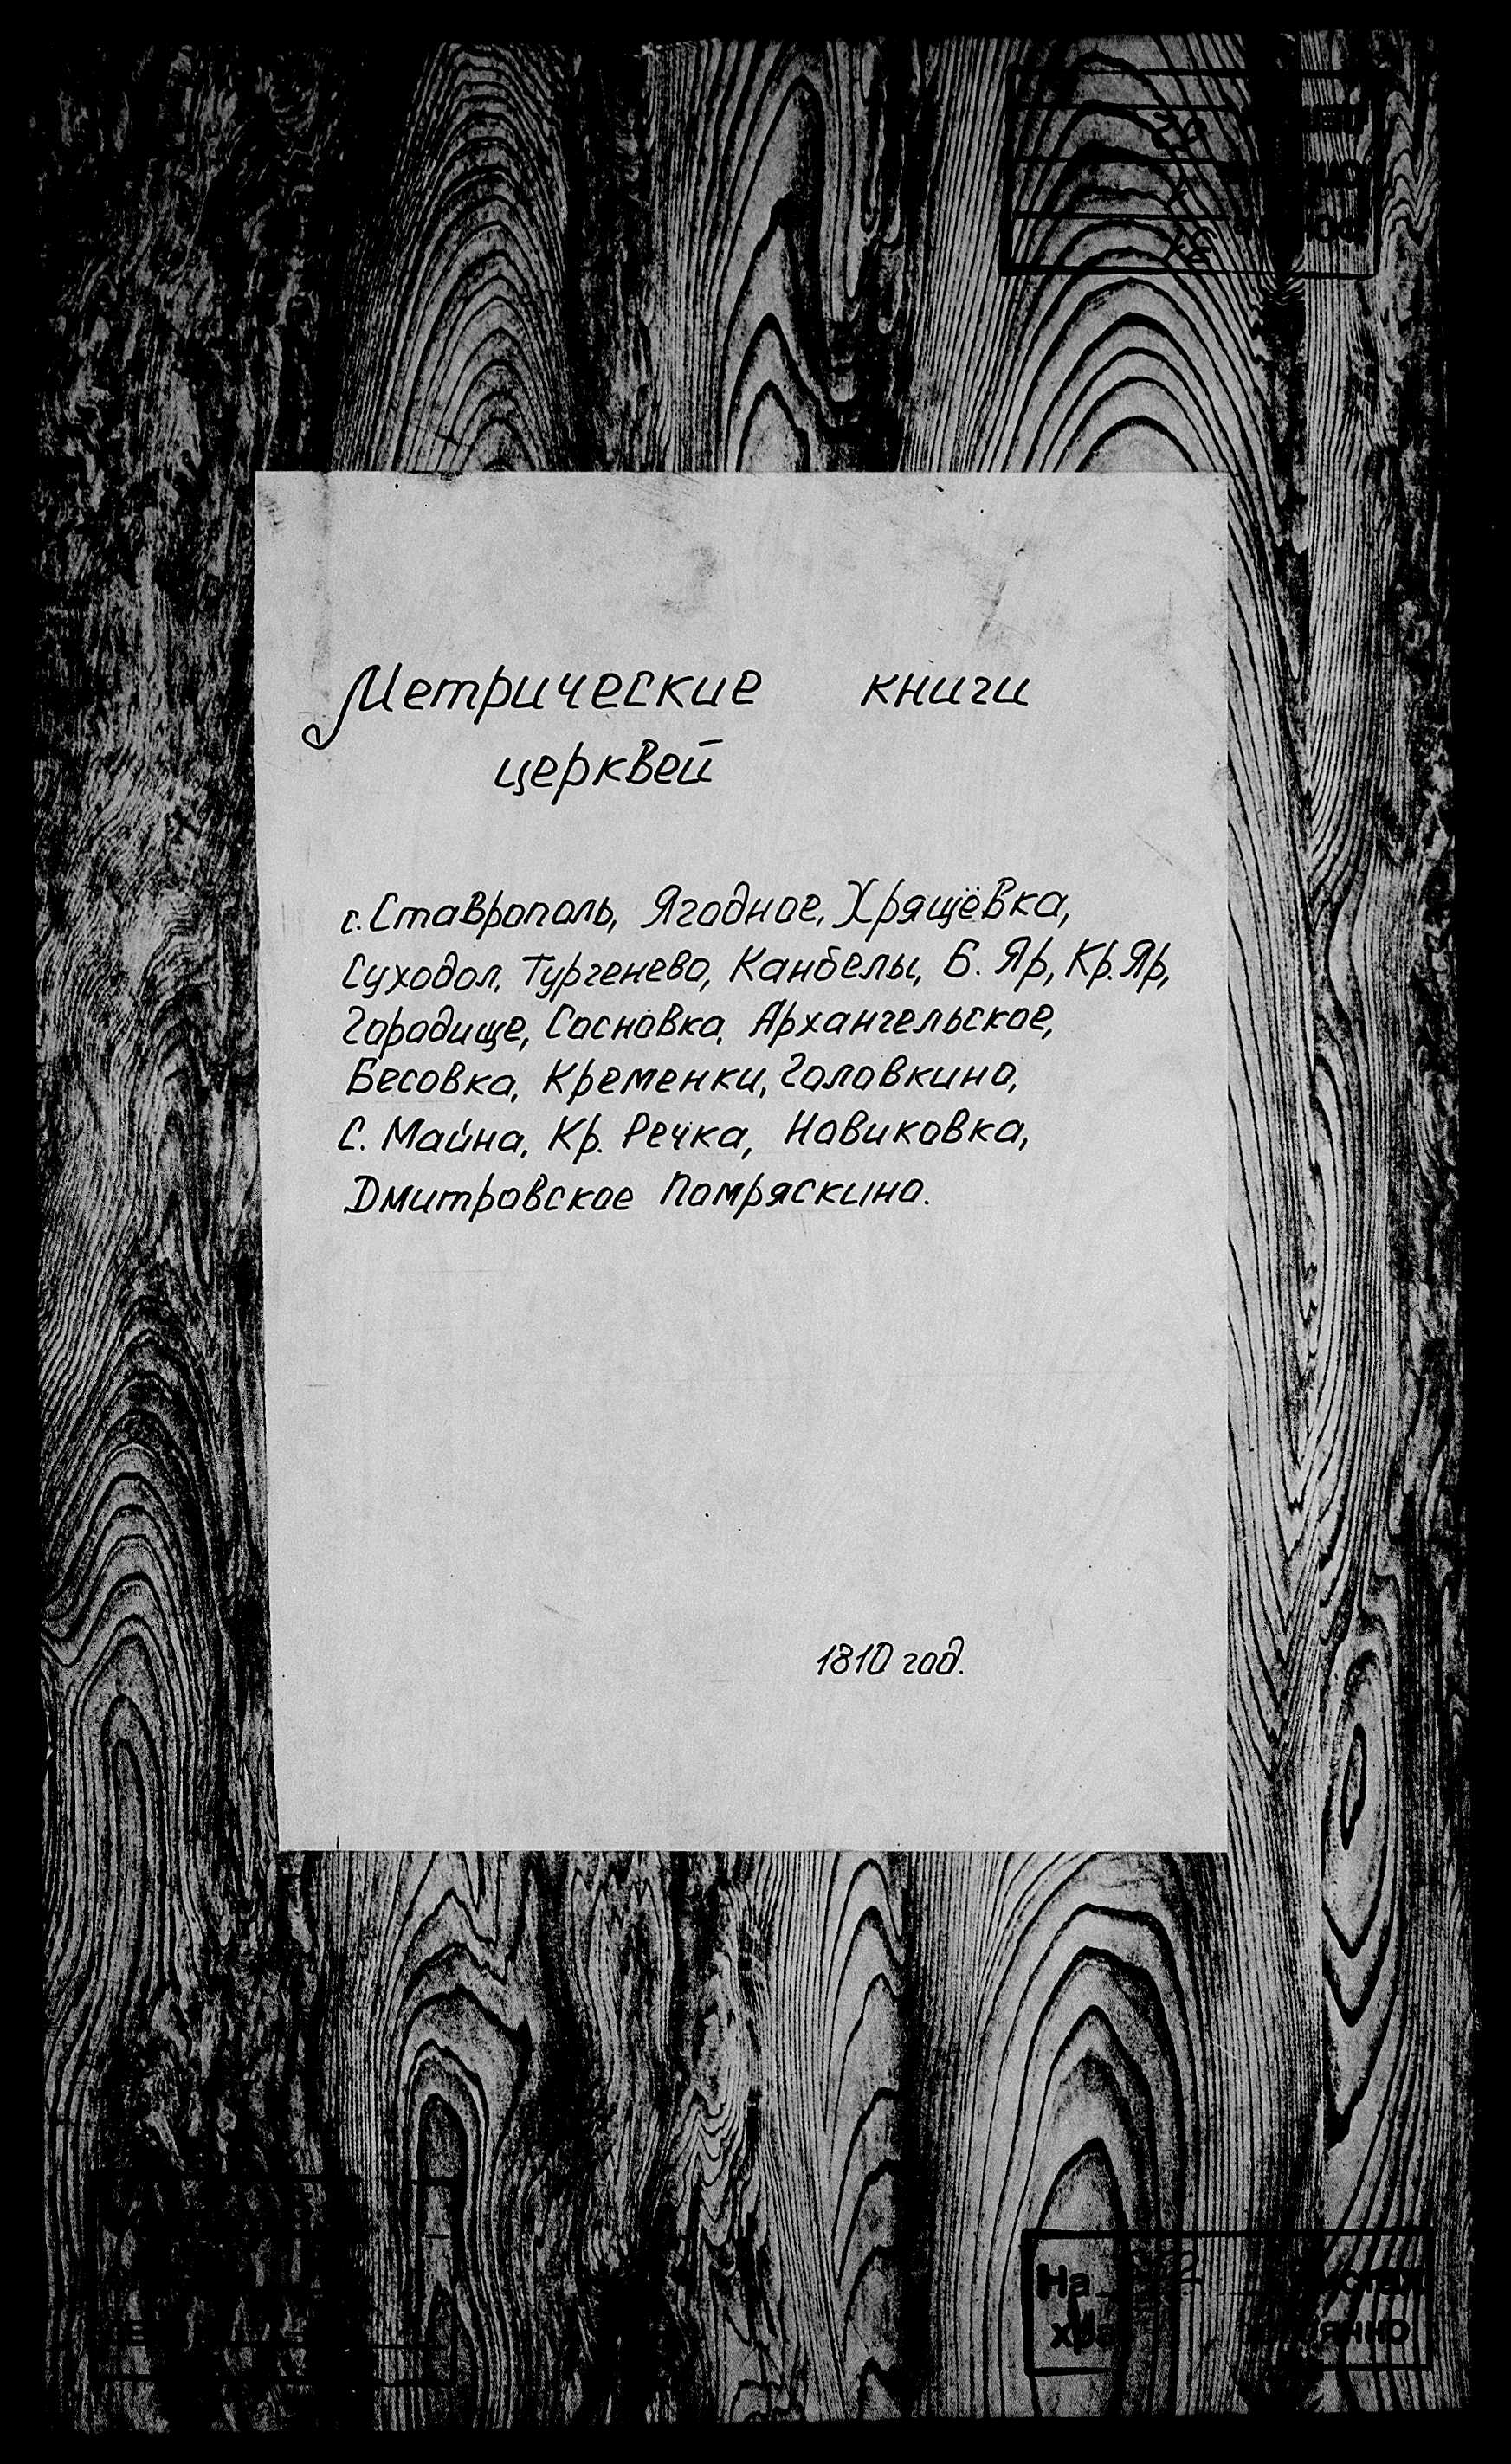 Метрические книги
церквей
г. Ставрополь, Ягодное, Хрящёвка,
Суходол, Тургенево, Канбелы, Б. Яр, Кр. Яр,
Городище, Сосновка, Архангельское,
Бесовка, Кременки, Головкино,
С. Майна, Кр. Речка, Новиковка,
Дмитровское Помряскино.
1810 год.
На